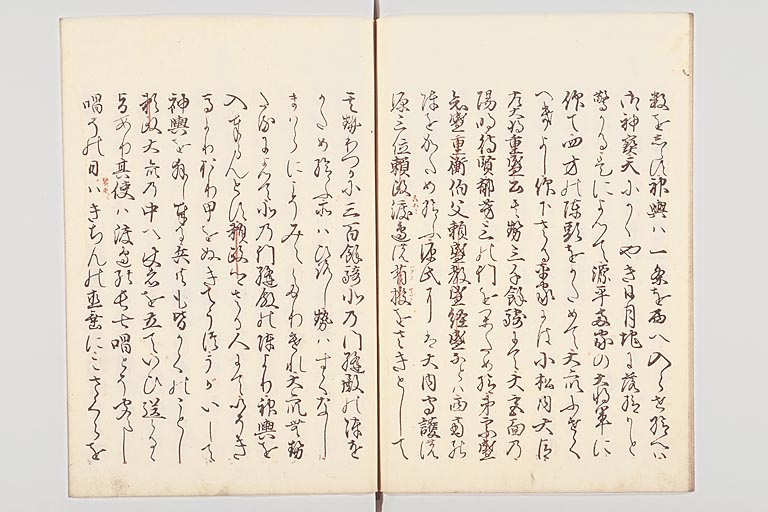 数をしらす神輿ハ一条を西へ入らせ給へハ
御神宝天にかゝやき日月地に落給ふかと
驚かる是によつて源平両家の大将軍に
仰て四方の陣頭をかためて大衆ふせく
へきよし仰下さる平家には小松内大臣
左大将重盛公其勢三千余騎にて大宮面の
陽明待賢郁芳三の門をかため給ふ弟宗盛
知盛重衡伯父頼盛教盛経盛なとハ西南の
陣をかため給ふ源氏には大内守護の
源三位頼政渡辺の省授をさきとして
其勢わつかに三百余騎北の門縫殿の陣を
かため給ふ所ハひろし勢ハすくなし
まはらにこそみえたりけれ大衆無勢
たるによつて北の門縫殿の陣より神輿を
入奉らんとす頼政卿さる人にて
馬よりおり甲をぬきてうかいして
神輿を拝し奉る兵共も皆かくのことし
頼政大衆の中へ使者を立ていひ送る
旨あり其使ハ渡辺の長七唱とそ聞えし
唱その日ハきちんの直垂にこさくらを